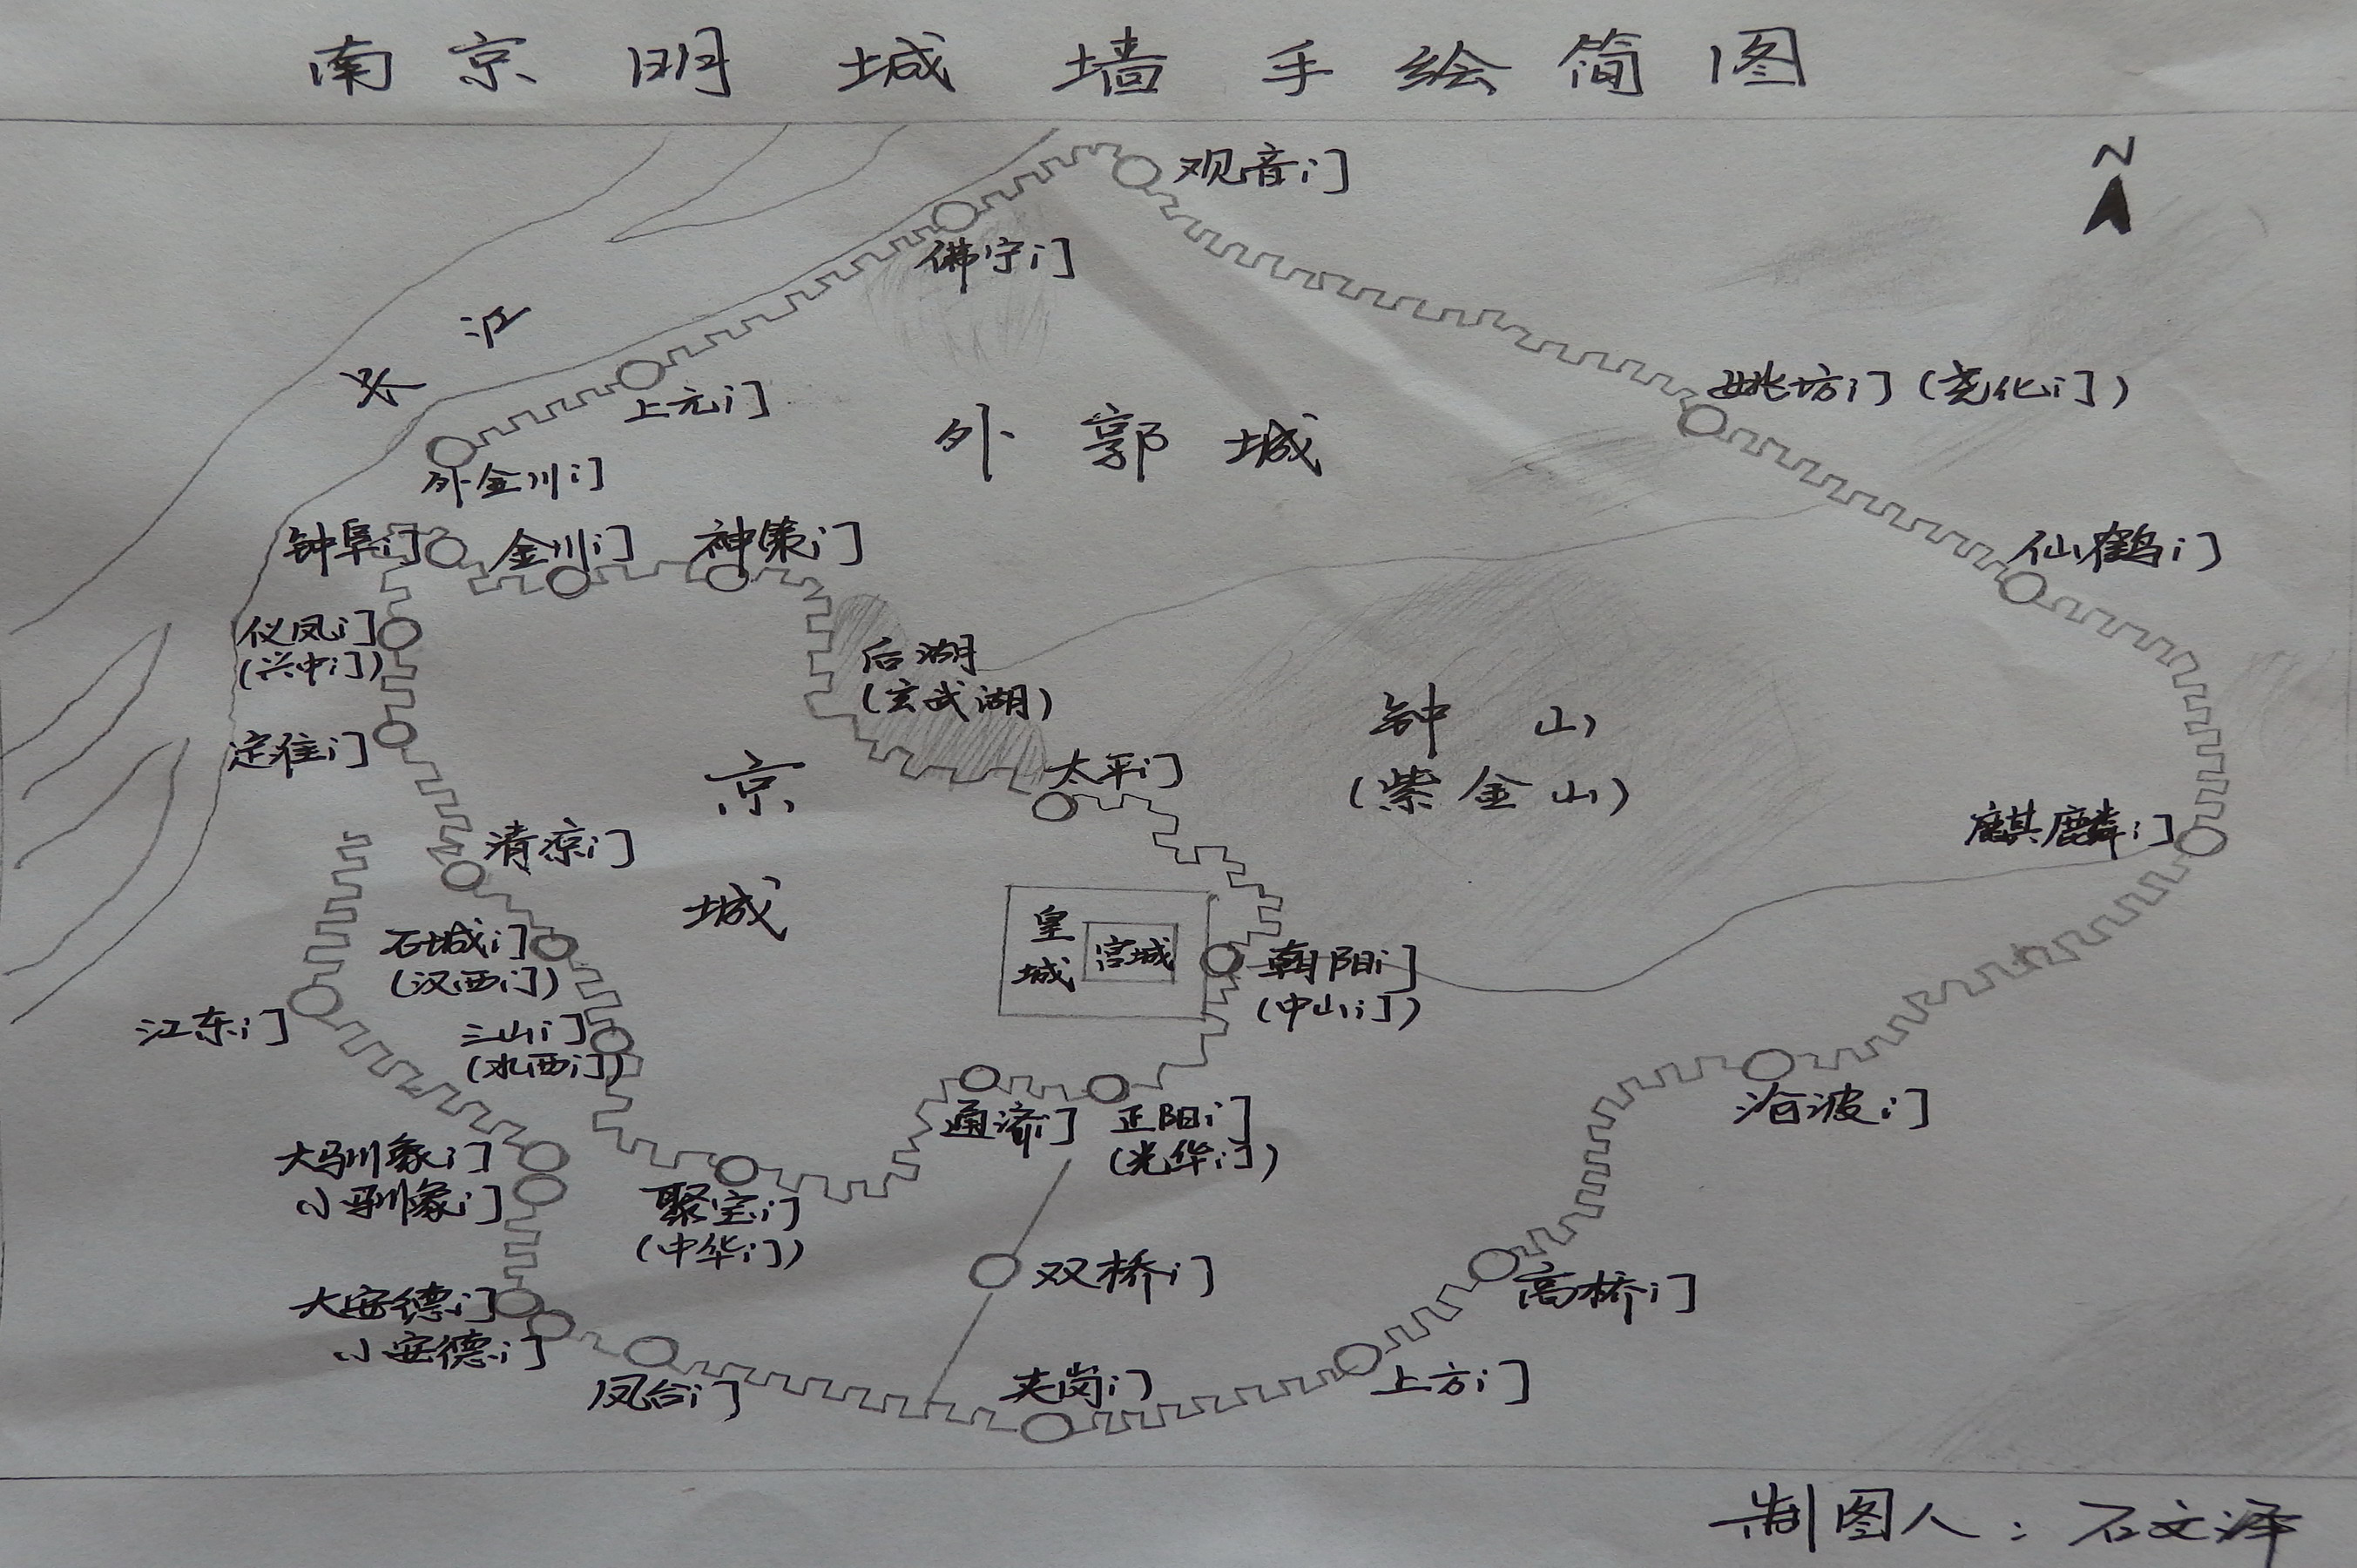 南京明城墙手绘简图
N
观音门
佛宁门
长江
上元门
姚坊门(尧化门)
外郭城
外金川门
钟阜门
金川门
神策门
仙鹤门
仪凤门
(兴中门)
后湖
(玄武湖)
定淮门
钟山
(紫金山)
太平门
京城
清凉门
麒麟门
石城门
(汉西门)
皇城
宫城
朝阳门
(中山门)
江东门
三山门
(水西门)
通济门
正阳门
(光华门)
沧波门
大驯象门
小驯象门
聚宝门
(中华门)
双桥门
高桥门
大安德门
小安德门
凤台门
夹岗门
上方门
制图人:石文泽